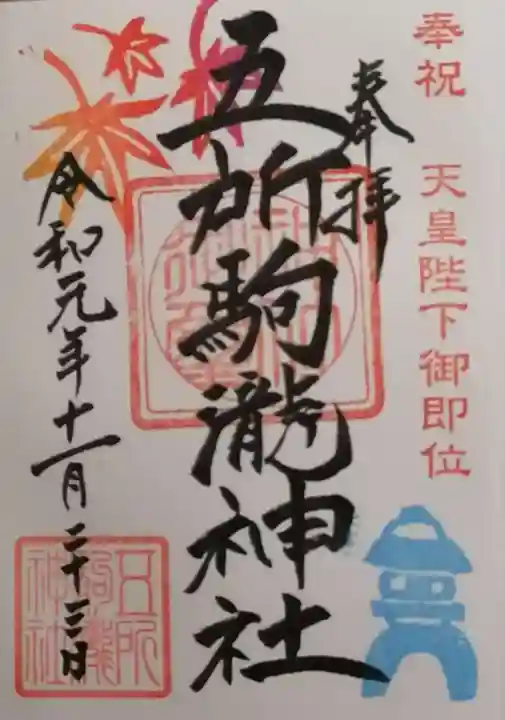 奉祝 天皇陛下御即位
奉拝
五所駒瀧神社
令和元年十一月二十三日